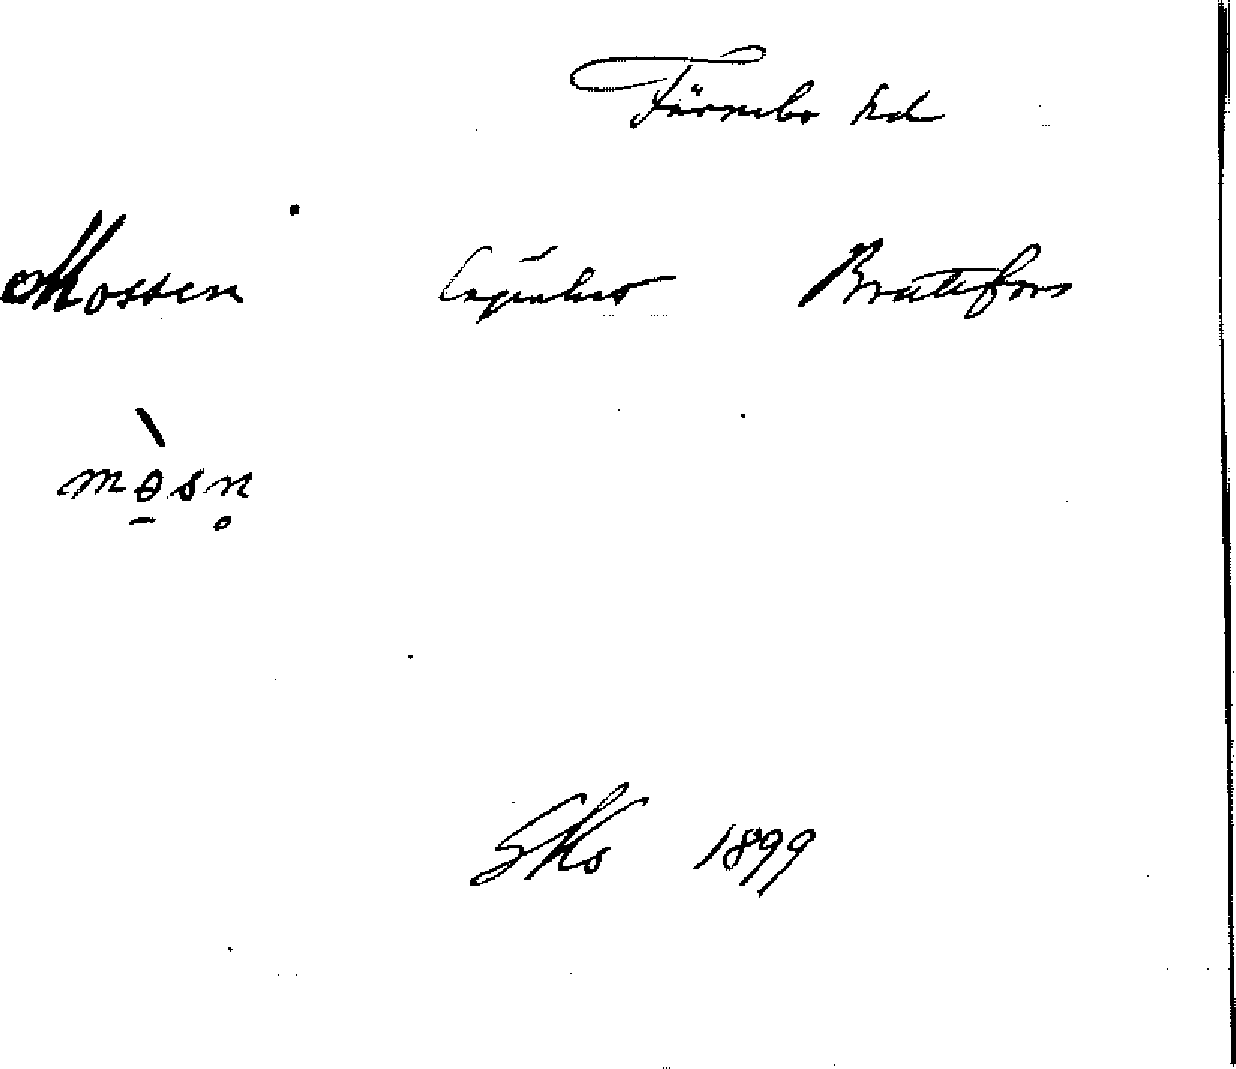 Färnebo hd
Mossen Lägenhet Brattfors
mɵsn
SKs 1899